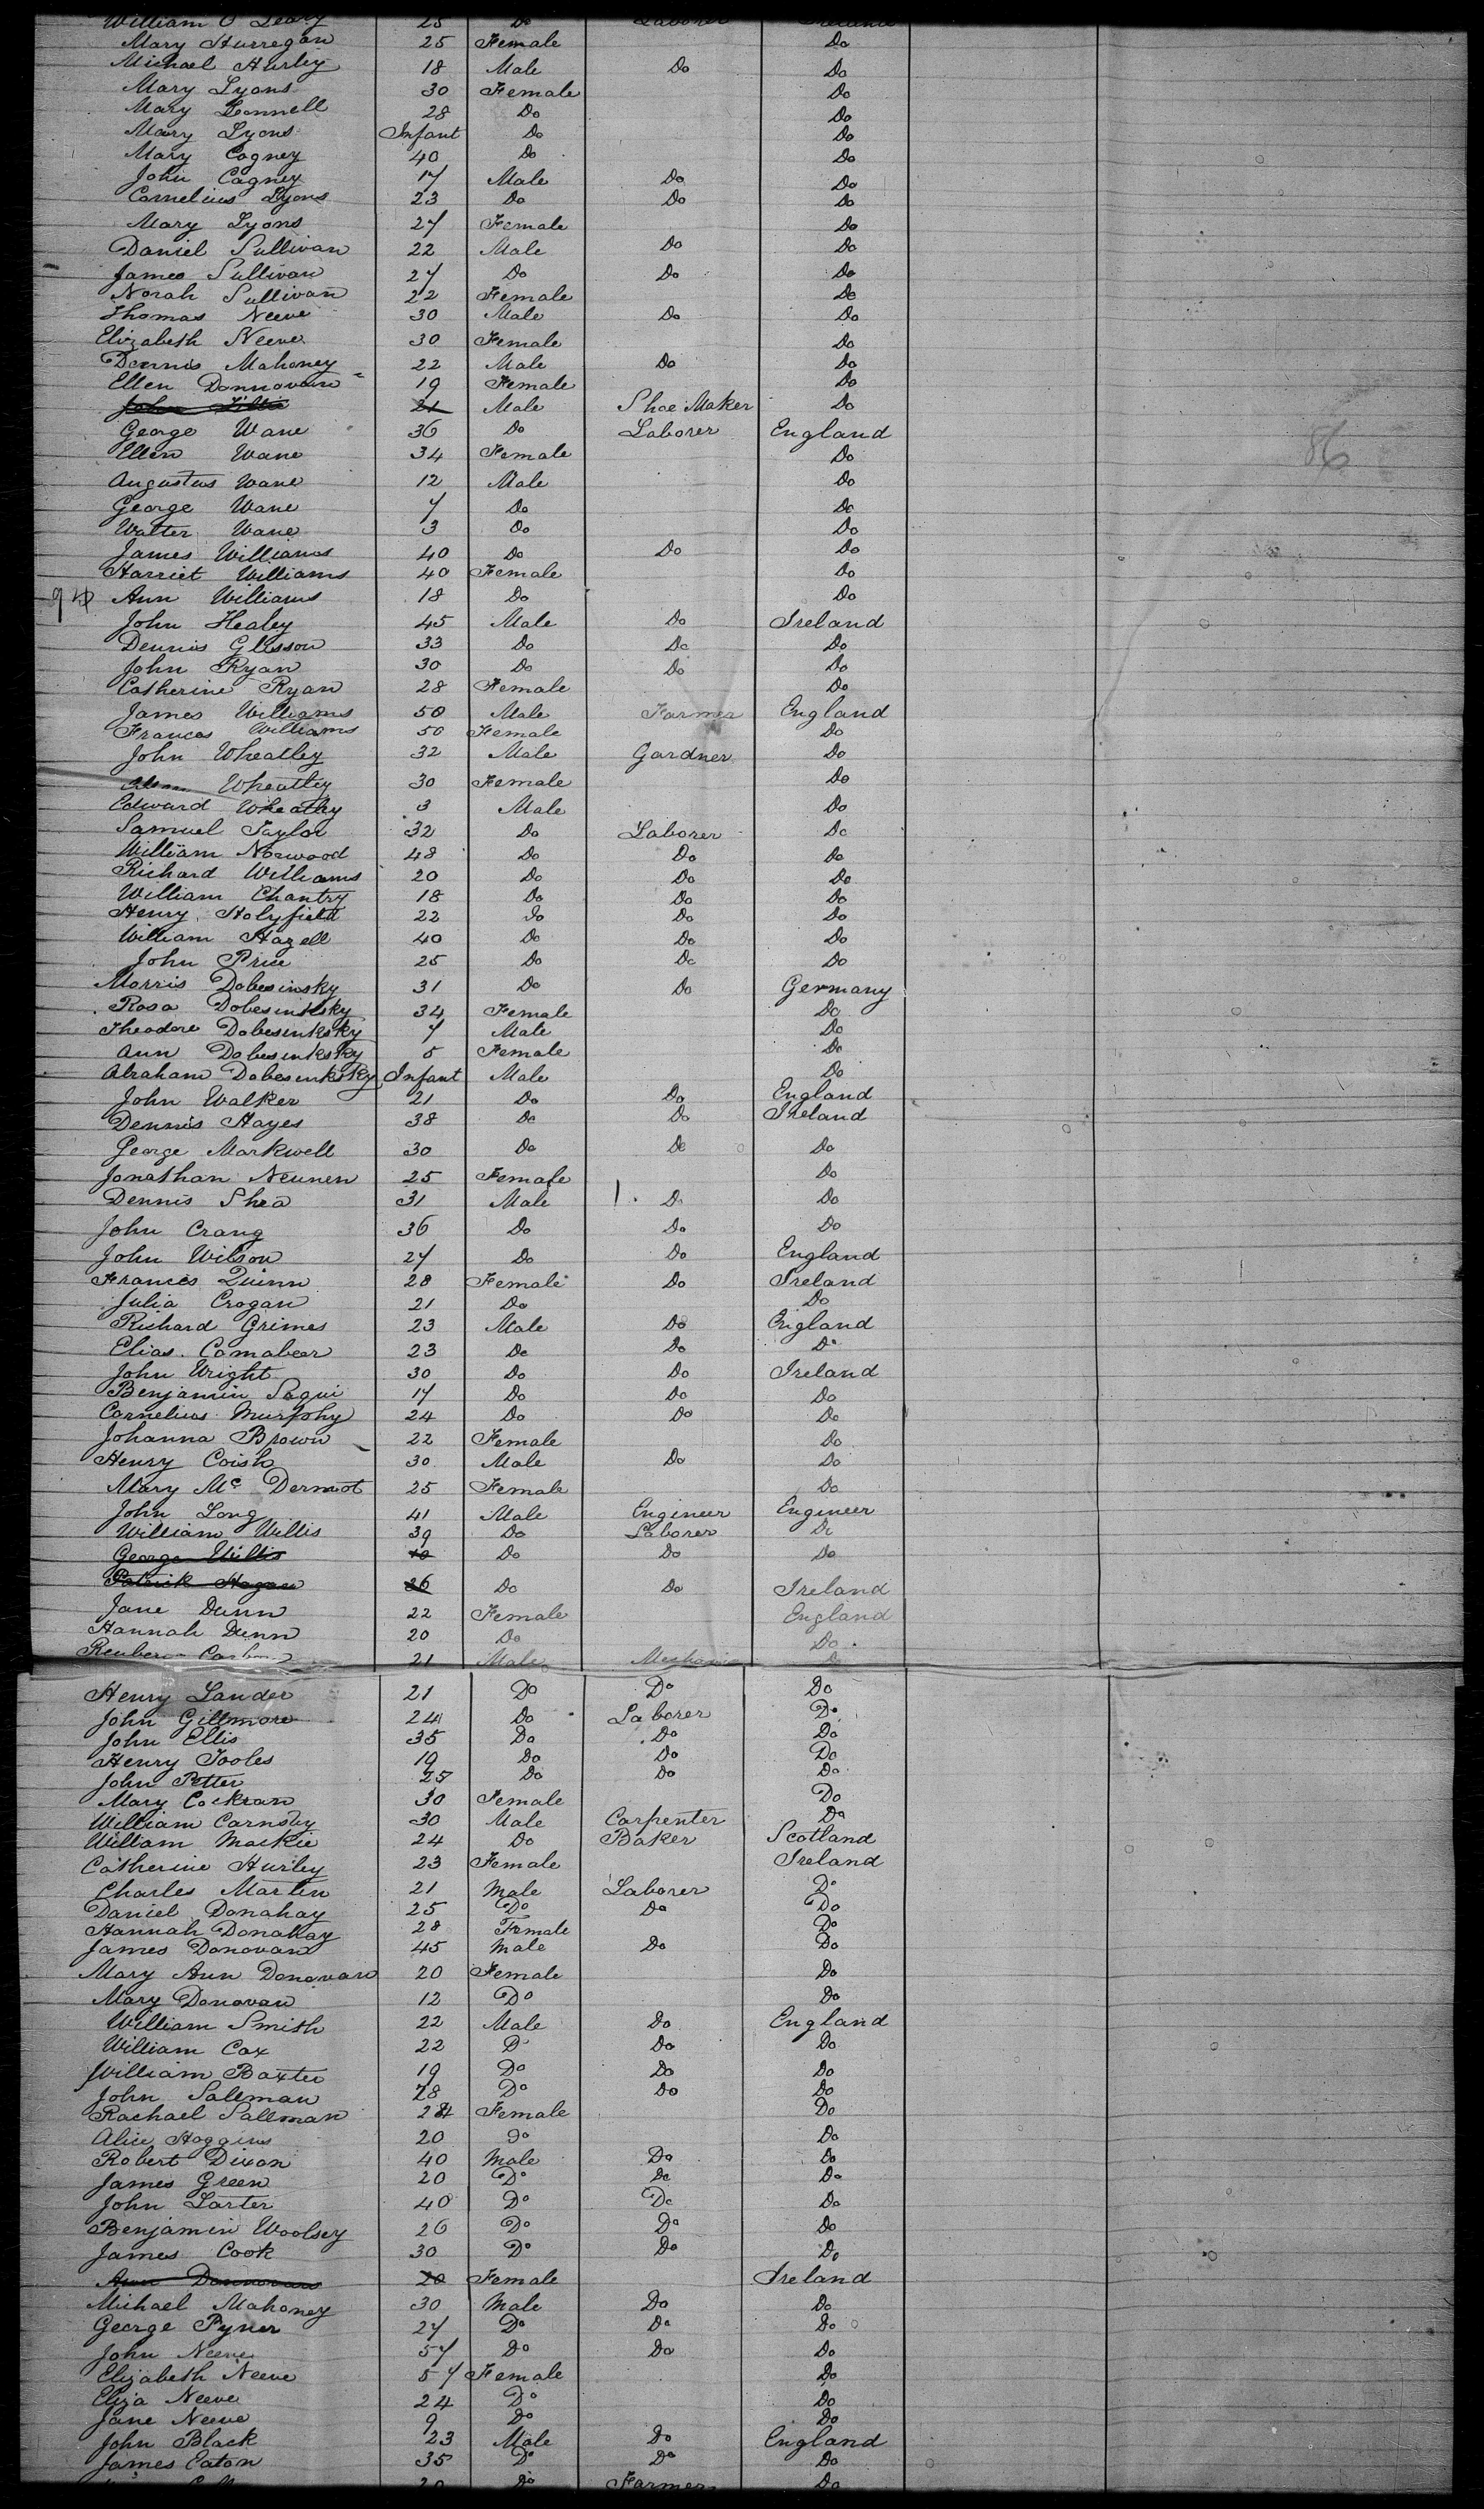 William O Leary 25 Do Laborer Ireland
Mary Hurregan 25 Female Do
Michael Hurley 18 Male Do Do
Mary Lyons 30 Female Do
Mary Connell 28 Do Do
Mary Lyons Infant Do Do
Mary Cagney 40 Do Do
John Cagney 17 Male Do Do
Cornelius Lyons 23 Do Do Do
Mary Lyons 27 Female Do
Daniel Sullivan 22 Male Do Do
James Sullivan 27 Do Do Do
Norah Sullivan 22 Female Do
Thomas Neeve 30 Male Do Do
Elizabeth Neeve 30 Female Do
Dennis Mahoney 22 Male Do Do
Ellen Donnovan 19 Female Do
John 21 Male Shoe Maker Do
George Wane 36 Do Laborer England
Ellen Wane 34 Female Do
Augustus Wane 12 Male Do
George Wane 7 Do Do
Walter Wane 3 Do Do
James Williams 40 Do Do Do
Harriet Williams 40 Female Do
Ann Williams 18 Do Do
John Healey 45 Male Do Ireland
Dennis Glisson 33 Do Do Do
John Ryan 30 Do Do Do
Catherine Ryan 28 Female Do
James Williams 50 Male Farmer England
Frances Williams 50 Female Do
John Wheatley 32 Male Gardner Do
Wheatley 30 Female Do
Edward Wheatley 3 Male Do
Samuel Taylor 32 Do Laborer Do
William Norwood 48 Do Do Do
Richard Williams 20 Do Do Do
William Chantry 18 Do Do Do
Henry Holyfield 22 Do Do Do
William Hazell 40 Do Do Do
John Price 25 Do Do Do
Morris Dobesinsky 31 Do Do Germany
Rosa Dobesinksky 34 Female Do
Theodore Dobesinksky 7 Male Do
Ann Dobesinksky 5 Female Do
Abraham Dobesinksky Infant Male Do
John Walker 21 Do Do England
Dennis Hayes 38 Do Do Ireland
George Markwell 30 Do Do Do
Jonathan Neunen 25 Female Do
Dennis Shea 31 Male Do Do
John Crang 36 Do Do Do
John Wilson 27 Do Do England
Frances Quinn 28 Female Do Ireland
Julia Crogan 21 Do Do
Richard Grimes 23 Male Do England
Elias Comabear 23 Do Do Do
John Wright 30 Do Do Ireland
Benjamin Saqui 17 Do Do Do
Cornelius Murphy 24 Do Do Do
Johanna Brown 22 Female Do
Henry Coish 30 Male Do Do
Mary Mc Dermot 25 Female Do
John Long 41 Male Engineer Engineer
William Willis 39 Do Laborer Do
George Willis 10 Do Do Do
Patrick Hagan 26 Do Do Ireland
Jane Dunn 22 Female England
Hannah Dunn 20 Do Do
Reuben 21 Male Mechanic Do
Henry Lander 21 Do Do Do
John Gillmore 24 Do Laborer Do
John Ellis 35 Do Do Do
Henry Tooles 19 Do Do Do
John Petter 25 Do Do Do
Mary Cockran 30 Female Do
William Carnsby 30 Male Carpenter Do
William Mackie 24 Do Baker Scotland
Catherine Hurley 23 Female Ireland
Charles Martin 21 Male Laborer Do
Daniel Donahay 25 Do Do Do
Hannah Donahay 28 Female Do
James Donovan 45 Male Do Do
Mary Ann Donovan 20 Female Do
Mary Donovan 12 Do Do
William Smith 22 Male Do England
William Cox 22 Do Do Do
William Baxter 19 Do Do Do
John Sallman 28 Do Do Do
Rachael Sallman 24 Female Do
Alice Hoggins 20 Do Do
Robert Dixon 40 Male Do Do
James Green 20 Do Do Do
John Larter 40 Do Do Do
Benjamin Woolsey 26 Do Do Do
James Cook 30 Do Do Do
Ann Donnovan 20 Female Ireland
Michael Mahoney 30 Male Do Do
George Pyner 27 Do Do Do
John Neeve 57 Do Do Do
Elizabeth Neeve 57 Female Do
Eliza Neeve 24 Do Do
Jane Neeve 9 Do Do
John Black 23 Male Do England
James Eaton 35 Do Do Do
20 Do Farmer Do
86